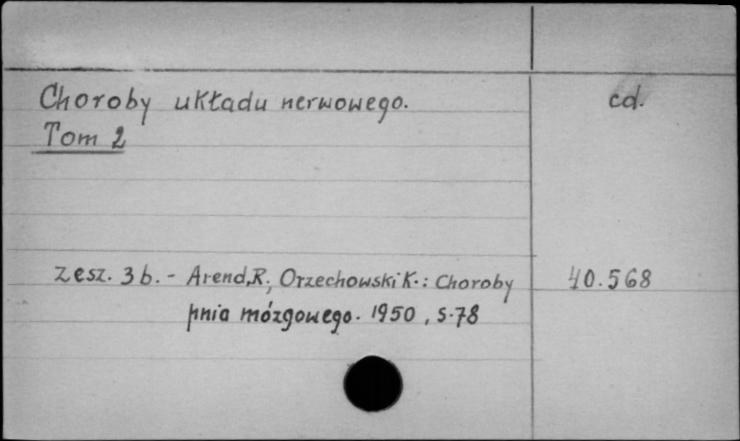 Choroby układu nerwowego. cd.
Tom 2
zesz. 3b. - Arend,R., Orzechowski K.: Choroby 40.568
pnia mózgowego. 1950, s.78